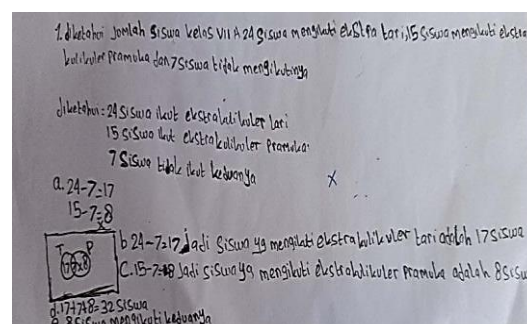 1. diketahui jomlah siswa kelas VII A 24 siswa mengikuti ekstra tari, 15 siswa mengikuti ekstra
kulikuler pramuka dan 7 siswa tidak mengikutinya
diketahui = 24 siswa ikut ekstrakulikuler tari
15 siswa ikut ekstrakulikuler pramuka.
7 siswa tidak ikut keduanya
x
a. 24-7=17
15-7=8
T P
b 24-7=17 Jadi siswa yg mengikuti ekstrakulikuler tari adalah 17 siswa
C. 15-7=8 Jadi siswa yg mengikuti ekstrakulikuler pramuka adalah 8 sisw
d. 17+7+8=32 siswa
8 siswa mengikuti keduanya